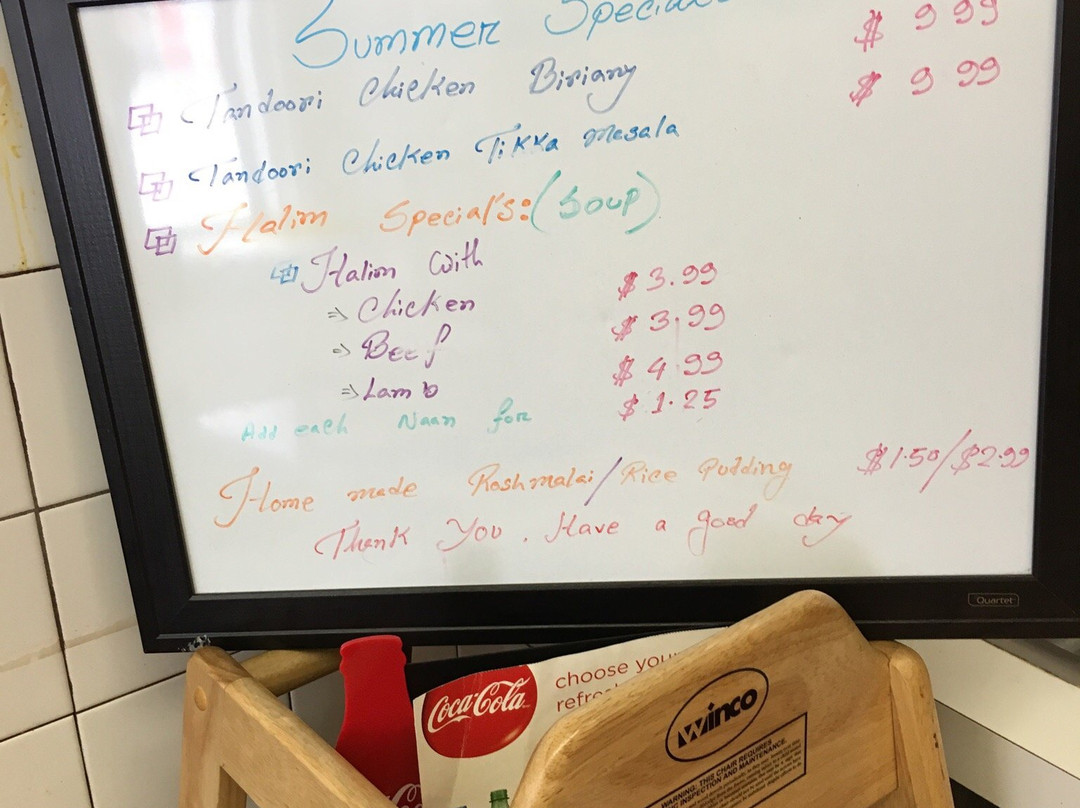 Summer Specials
$ 9 99
Tandoori Chicken Biriany $ 9 99
Tandoori Chicken Tikka masala
Halim Special's: (Soup)
Halim With
⇒ Chicken $3.99
⇒ Beef $3.99
⇒ Lamb $4.99
Add each Naan for $1.25
Home made Roshmalai/Rice Pudding $1.50/$2.99
Thank You. Have a good day
Quartet
Coca-Cola
choose your
refre
Winco
WARNING: THIS CHAIR REQUIRES
INSPECTION AND MAINTENANCE.